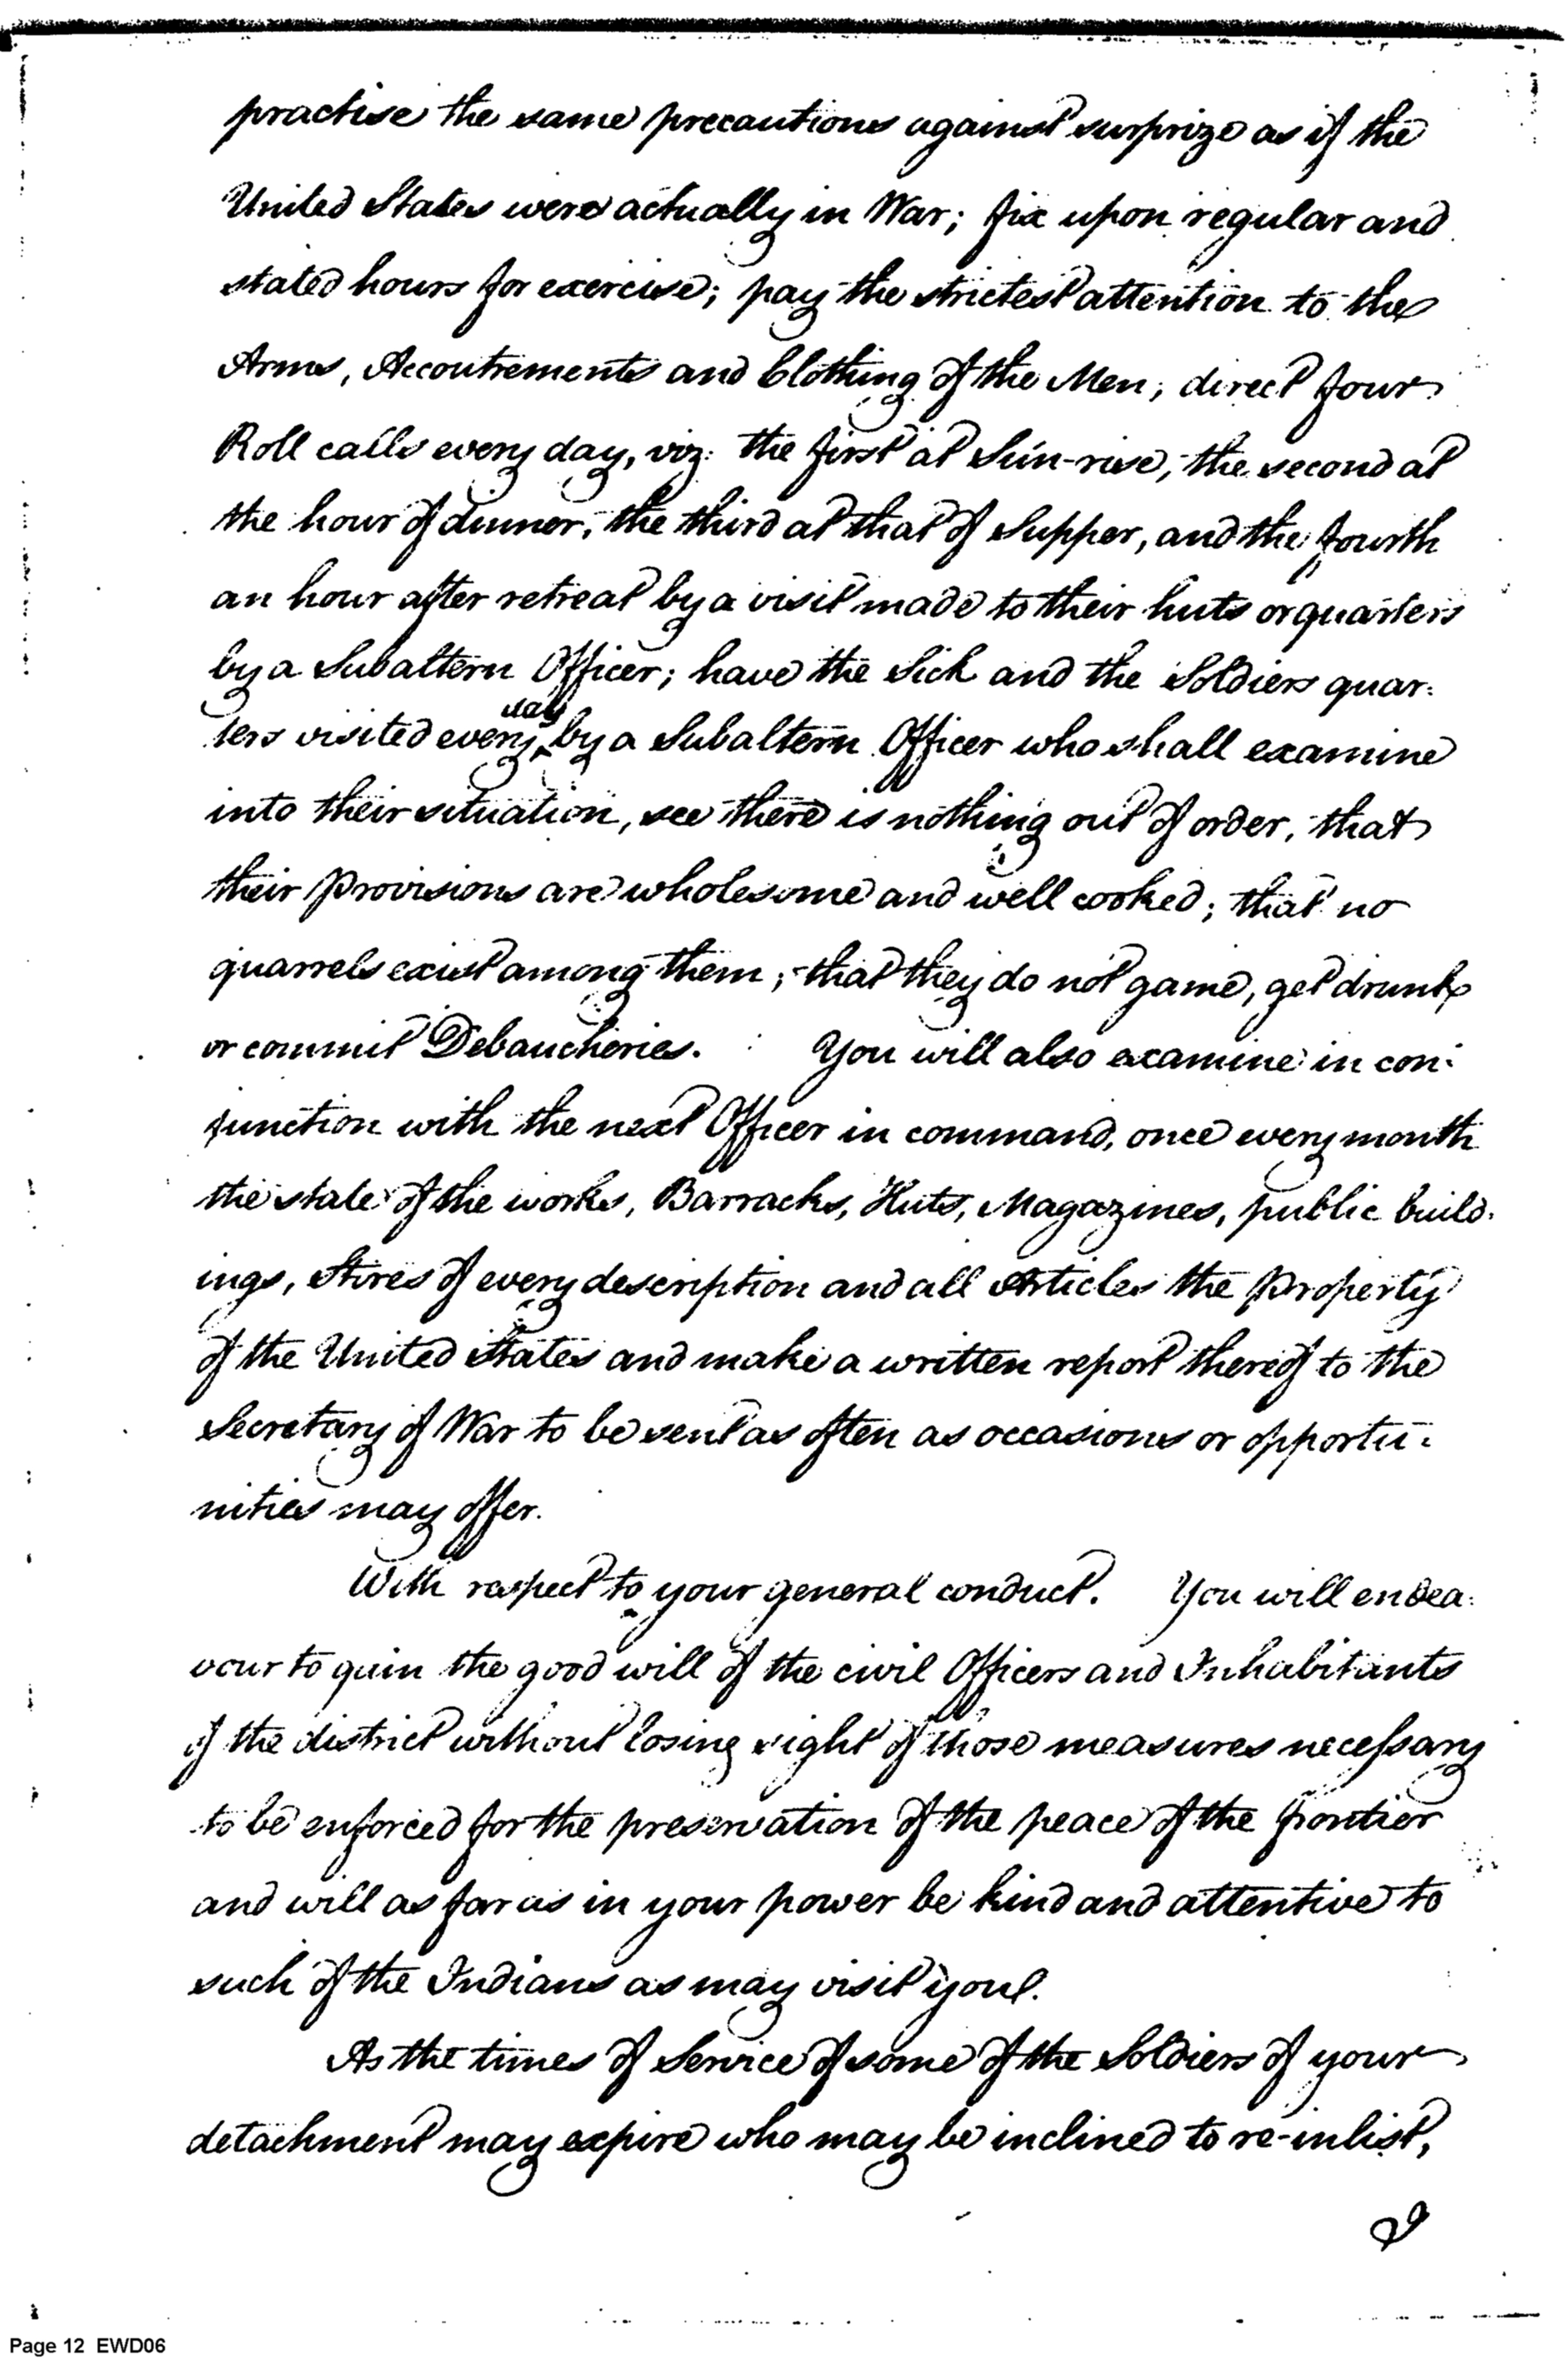 practise the same precautions against surprize as if the
United States were actually in War; fix upon regular and
stated hours for exercise; pay the strictest attention to the
Arms, Accoutrements and Clothing of the Men, direct four
Roll calls every day, viz: the first at Sun-rise, the second at
the hour of dinner, the third at that of Supper, and the fourth
an hour after retreat by a visit made to their huts or quarters
by a Subaltern Officer; have the Sick and the Soldiers quar:
day
ters visited every by a Subaltern Officer who shall examine
into their situation, see there is nothing out of order, that
their provisions are wholesome and well cooked; that no
quarrels exist among them; that they do not game, get drunk
or commit Debaucheries. You will also examine in con:
junction with the next Officer in command, once every month
the state of the works, Barracks, Huts, Magazines, public build:
ings, Stores of every description and all Articles the property
of the United States and make a written report thereof to the
Secretary of War to be sent as often as occasions or opportu:
nities may offer.
With respect to your general conduct. You will endea:
vour to gain the good will of the civil Officers and Inhabitants
of the district without losing sight of those measures necessary
to be enforced for the preservation of the peace of the frontier
and will as far as in your power be kind and attentive to
such of the Indians as may visit you.
As the times of Service of some of the Soldiers of your
detachment may expire who may be inclined to re-inlist,
I
Page 12 EWD06